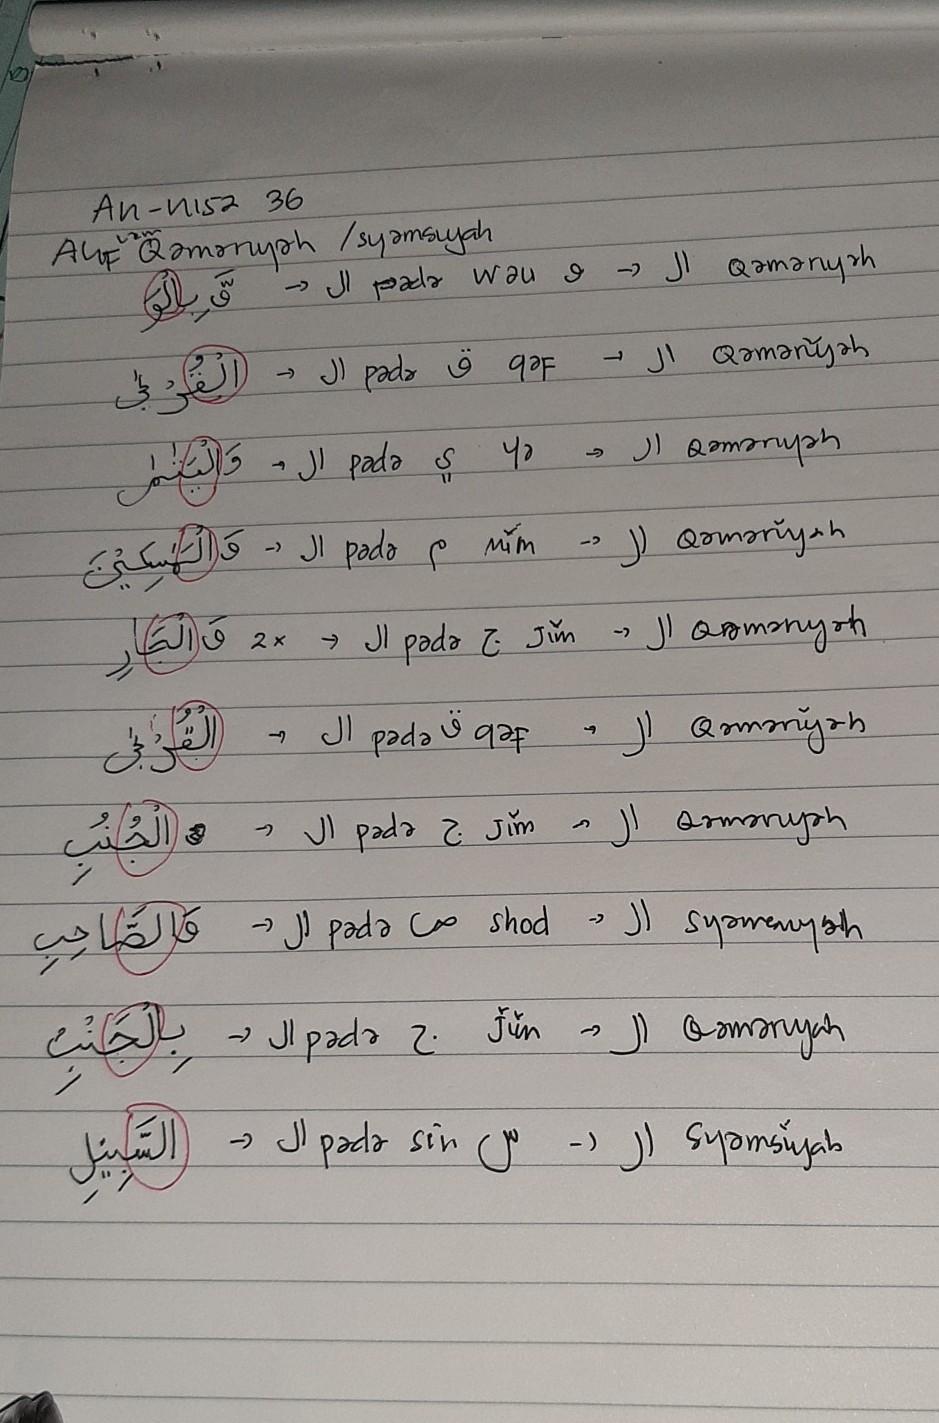 An-nisa 36
Alif lam Qamariyah / syamsiyah
وَّبِالْوَ → ال pada wau و → ال Qamariyah
الْقُرْبٰى → ال pada ق qaf → ال Qamariyah
وَالْيَتٰمٰى → ال pada ي ya → ال Qamariyah
وَالْمَسٰكِيْنِ → ال pada م mim → ال Qamariyah
وَالْجَارِ 2x → ال pada ج Jim → ال Qamariyah
الْقُرْبٰى → ال pada ق qaf → ال Qamariyah
الْجُنُبِ → ال pada ج Jim → ال Qamariyah
وَالصَّاحِبِ → ال pada ص shod → ال syamsiyah
بِالْجَنْبِ → ال pada ج Jim → ال Qamariyah
السَّبِيْلِ → ال pada sin س → ال Syamsiyah